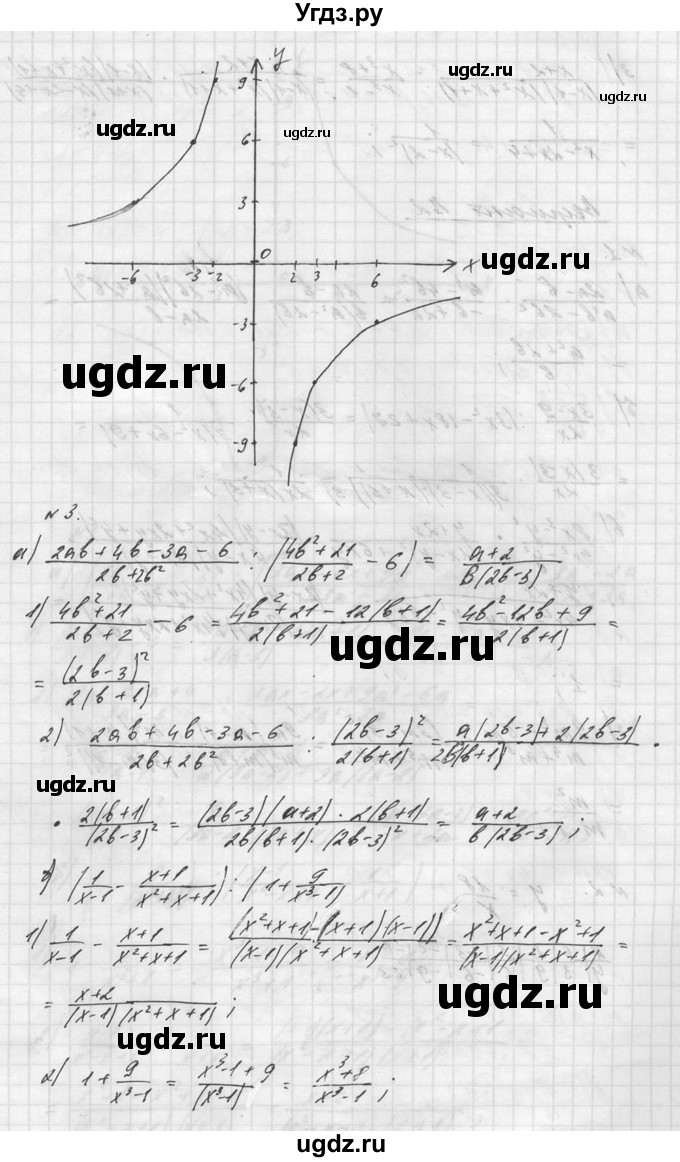 Угдз.ру
y
9
ugdz.ru
ugdz.ru
6
3
0
-6 -3 -2 2 3 6 x
ugdz.ru
-3
ugdz.ru
-6
-9
N 3.
а) (2ab+4b-3a-6)/(2b+2b²) : ((4b²+21)/(2b+2) - 6) = (a+2)/(b(2b-3))
1) (4b²+21)/(2b+2) - 6 = (4b²+21-12(b+1))/(2(b+1)) = (4b²-12b+9)/(2(b+1)) =
ugdz.ru
= (2b-3)²/(2(b+1))
2) (2ab+4b-3a-6)/(2b+2b²) : (2b-3)²/(2(b+1)) = (a(2b-3)+2(2b-3))/(2b(b+1)) ·
ugdz.ru
· 2(b+1)/(2b-3)² = ((2b-3)(a+2)·2(b+1))/(2b(b+1)·(2b-3)²) = (a+2)/(b(2b-3));
б) (1/(x-1) - (x+1)/(x²+x+1)) : (1+9/(x³-1))
1) 1/(x-1) - (x+1)/(x²+x+1) = ((x²+x+1)-(x+1)(x-1))/((x-1)(x²+x+1)) = (x²+x+1-x²+1)/((x-1)(x²+x+1)) =
ugdz.ru
= (x+2)/((x-1)(x²+x+1));
ugdz.ru
2) 1+9/(x³-1) = (x³-1+9)/(x³-1) = (x³+8)/(x³-1);
ugdz.ru